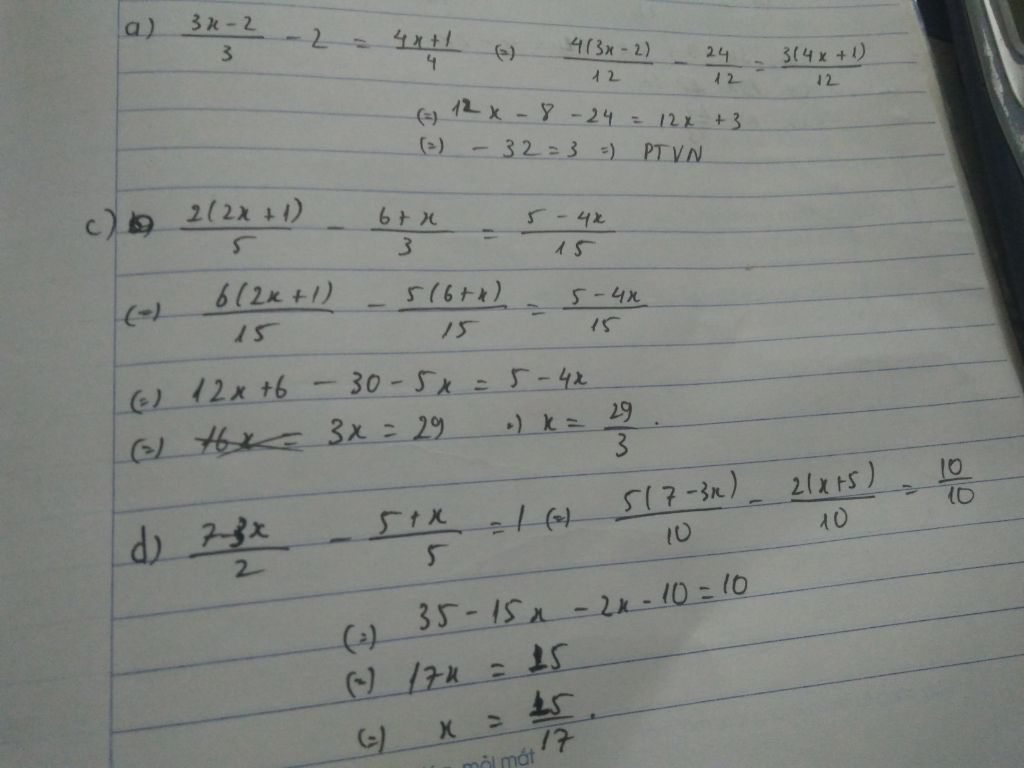 a) (3x-2)/3 - 2 = (4x+1)/4 (=) 4(3x-2)/12 - 24/12 = 3(4x+1)/12
(=) 12x - 8 - 24 = 12x + 3
(=) - 32 = 3 =) PTVN
c) 2(2x+1)/5 - (6+x)/3 = (5-4x)/15
(=) 6(2x+1)/15 - 5(6+x)/15 = (5-4x)/15
(=) 12x+6 - 30 - 5x = 5 - 4x
(=) 3x = 29 =) x = 29/3.
d) (7-3x)/2 - (5+x)/5 = 1 (=) 5(7-3x)/10 - 2(x+5)/10 = 10/10
(=) 35 - 15x - 2x - 10 = 10
(=) 17x = 15
(=) x = 15/17.
mỏi mát